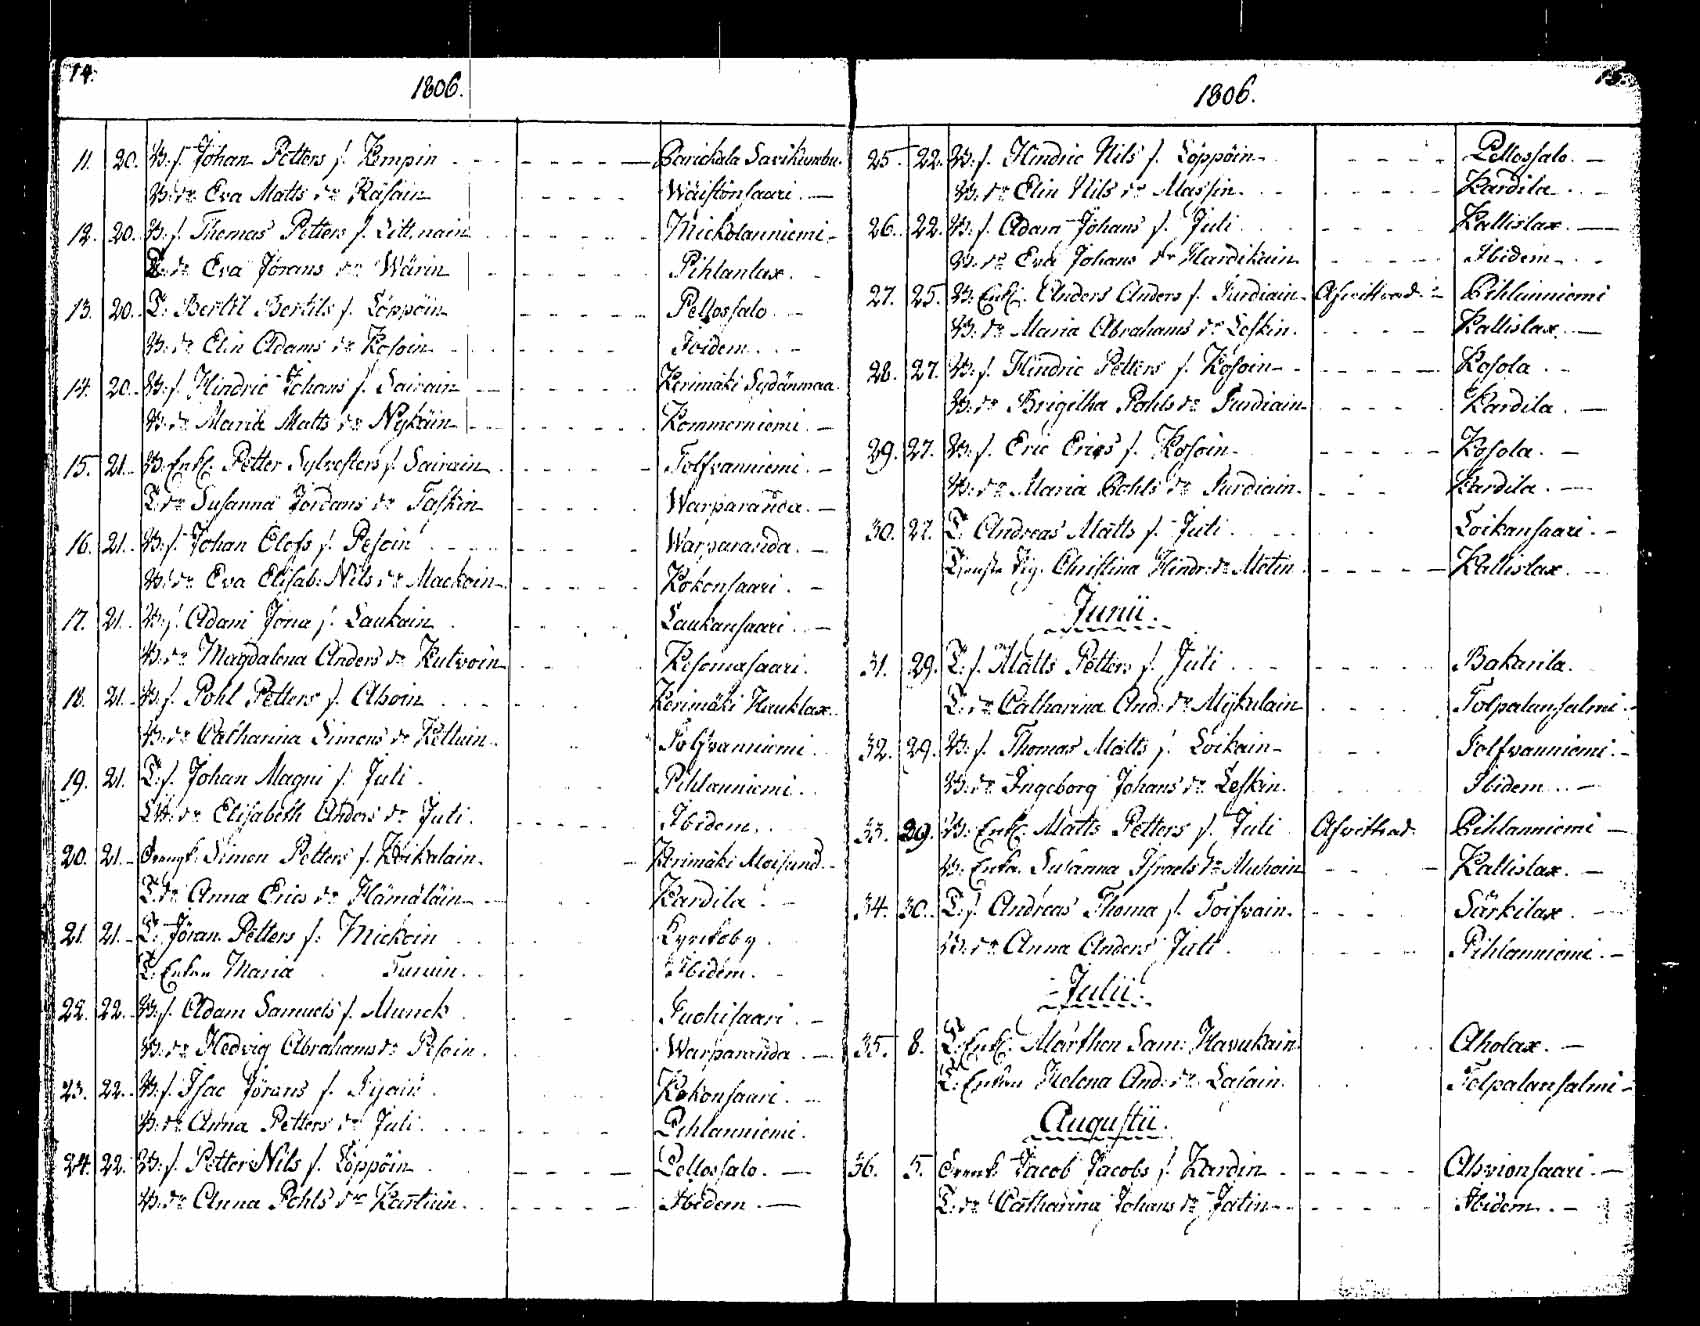 14.
1806.
11. 20. B: s. Johan Petters s. Kempin - - - - - - - Parickala Savikumbu.
B: dr Eva Matts dr Räsäin - - - - - Wäistönsaari. -
12. 20. B: s. Thomas Petters s. Litt.nain - - - - - - Mickolanniemi -
T: dr Eva Jörans dr Wärin - - - - - - Pihlanlax. -
13. 20. T: Bertil Bertils s. Löppöin - - - - - - Pellossalo. -
B: dr Elin Adams dr Kosoin - - - - - - Ibidem. - -
14. 20. B: s. Hindric Johans s. Sairain - - - - - - Kerimäki Sydänmaa.
B: dr Maria Matts dr Nykäin - - - - - - Kommerniemi. -
15. 21. B: Enkl. Petter Sylvesters s. Sairain - - - - - Tolfvanniemi. -
T: dr Susanna Jordans dr Taskin - - - - - Warparanda. -
16. 21. B: s. Johan Elofs s. Pesoin - - - - - - - Warparanda. -
B: dr Eva Elisab: Nils dr Mackoin - - - - - Kokonsaari. -
17. 21. B: s. Adam Jöna s. Laukain - - - - - Laukansaari. -
B: dr Magdalena Anders dr Kutvoin - - - Kesamasaari.
18. 21. B: s. Pohl Petters s. Ahvoin - - - - - Kerimäki Hauklax.
B: dr Catharina Simons dr Kettuin - Tolfvanniemi.
19. 21. T: s. Johan Magni s. Juli. Pihlanniemi. - -
dr Elisabeth Anders dr Juli. - - - - - Ibidem.
20. 21. Drengk. Simon Petters s. Koikalain. - Kerimäki Moisund. -
T: dr Anna Erics dr Hämäläin - - - - Kardila. -
21. 21. T: Jöran Petters s. Mickoin - - - - Kyrckoby.
T: Enkan Maria Turuin. - - Ibidem. -
22. 22. B: s. Adam Samuels s. Munck - - Tuohisaari. -
B: dr Hedvig Abrahams dr Pesoin. Warparanda. -
23. 22. B: s. Isac Jörans s. - - - Kokonsaari. -
B: dr Anna Petters dr Juli - - - - - - Pihlanniemi.
24. 22. B: s. Petter Nils s. Löppöin - - - - Pellossalo. -
B: dr Anna Pohls dr Kastiain. - - - - - Ibidem. -
15.
1806.
25. 22. B: s. Hindric Nils s. Löppöin - - - - - Pellossalo. -
B: dr Elin Nils dr Massin. - - - - - - Kardila. - -
26. 22. B: s. Adam Johans s. Juli - - - - - Kallislax. -
B: dr Eva Johans dr Hardikain - - - - - Ibidem. - -
27. 25. B: Enkl. Anders Anders s. Turdiain Afvittrad. - Pihlanniemi
B: dr Maria Abrahams dr Leskin. - - - - Kallislax. -
28. 27. B: s. Hindric Petters s. Kosoin - - - - - - Kosola. - -
B: dr Brigitha Pohls dr Turdiain - - - - Kardila. -
29. 27. B: s. Eric Erics s. Kosoin - Kosola. -
B: dr Maria Pohls dr Turdiain. - - - Kardila. -
30. 27. T: Andreas Matts s. Juli - - - - - - Loikansaari. -
Tjenste Pig. Christina Hindr: dr Motin - - - - - Kallislax. -
Junii.
31. 29. T: s. Matts Petters s. Juli - - - - - - - Bakarila.
T: dr Catharina And: dr Mykulain - - - - Tolpalansalmi. -
32. 29. B: s. Thomas Matts s. Loikain - - - Tolfvanniemi. -
B: dr Ingeborg Johans dr Leskin. - - - - - Ibidem. - -
33. 29. B: Enkl. Matts Petters s. Juli Afvittrad. Pihlanniemi -
B: Enka. Susanna Israels dr Muhoin - - - - Kallislax. -
34. 30. T: s. Andreas Thoma s. Toifvain. - - - - Särkilax. -
B: dr Anna Anders Juli - - - - - Pihlanniemi. -
Julii.
35. 8. T: Enkl. Mårthen Sam: Havukain. - - - Aholax. -
T: Enkan Helena And: dr Lasain. - Tolpalansalmi -
Augustii.
36. 5. Drenk. Jacob Jacobs s. Kardin - - - - - - Ahvionsaari. -
T: dr Catharina Johans dr Jatin - - - - - - - Ibidem. -